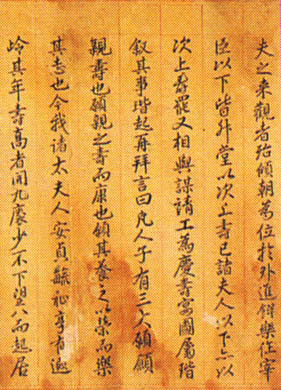 夫之來觀者殆傾朝焉位於外進餅樂任宰
臣以下皆升堂以次上壽已諸夫人以下亦以
次上壽罷又相與謀請工爲慶壽宴圖屬
叙其事 起再拜言曰凡人子有三大願願
親壽也願親之壽而康也願其養之以榮而樂
其志也今我諸太夫人安貞 祉享有遐
齡其年壽高者開九袠少不下望八而起居